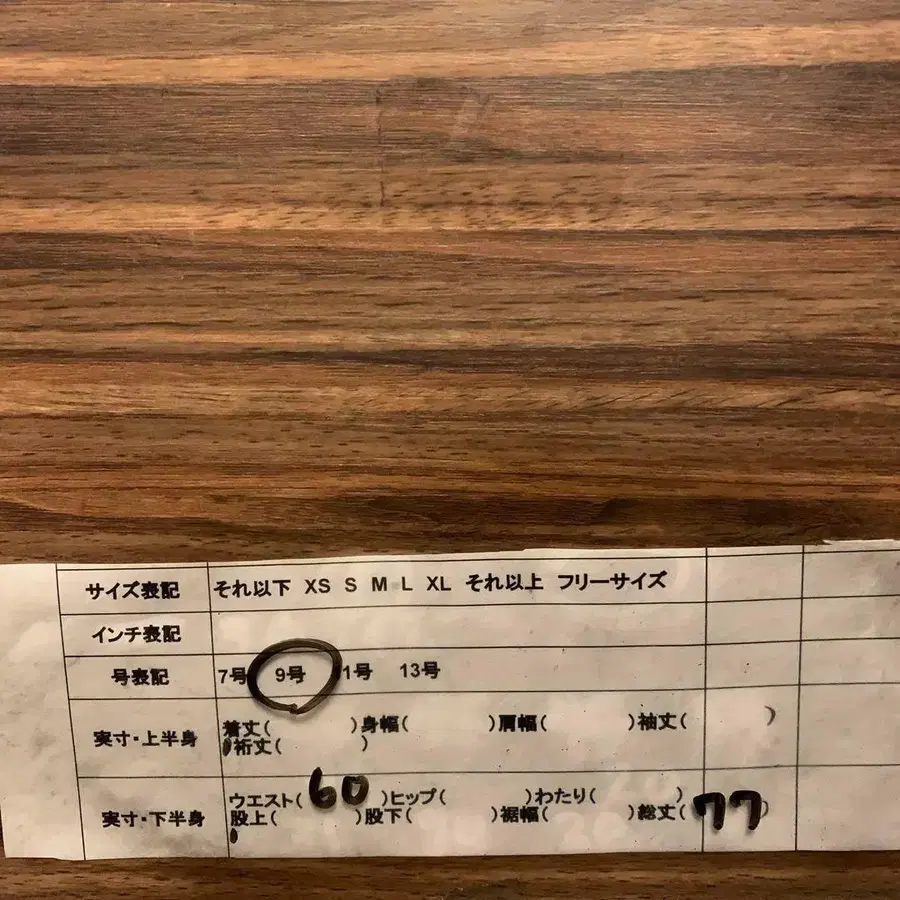 サイズ表記 それ以下 XS S M L XL それ以上 フリーサイズ
インチ表記
号表記 7号 9号 1号 13号
実寸・上半身 着丈( )身幅( )肩幅( )袖丈( )
裄丈( )
実寸・下半身 ウエスト( 60 )ヒップ( )わたり( )
股上( )股下( )裾幅( )総丈( 77 )